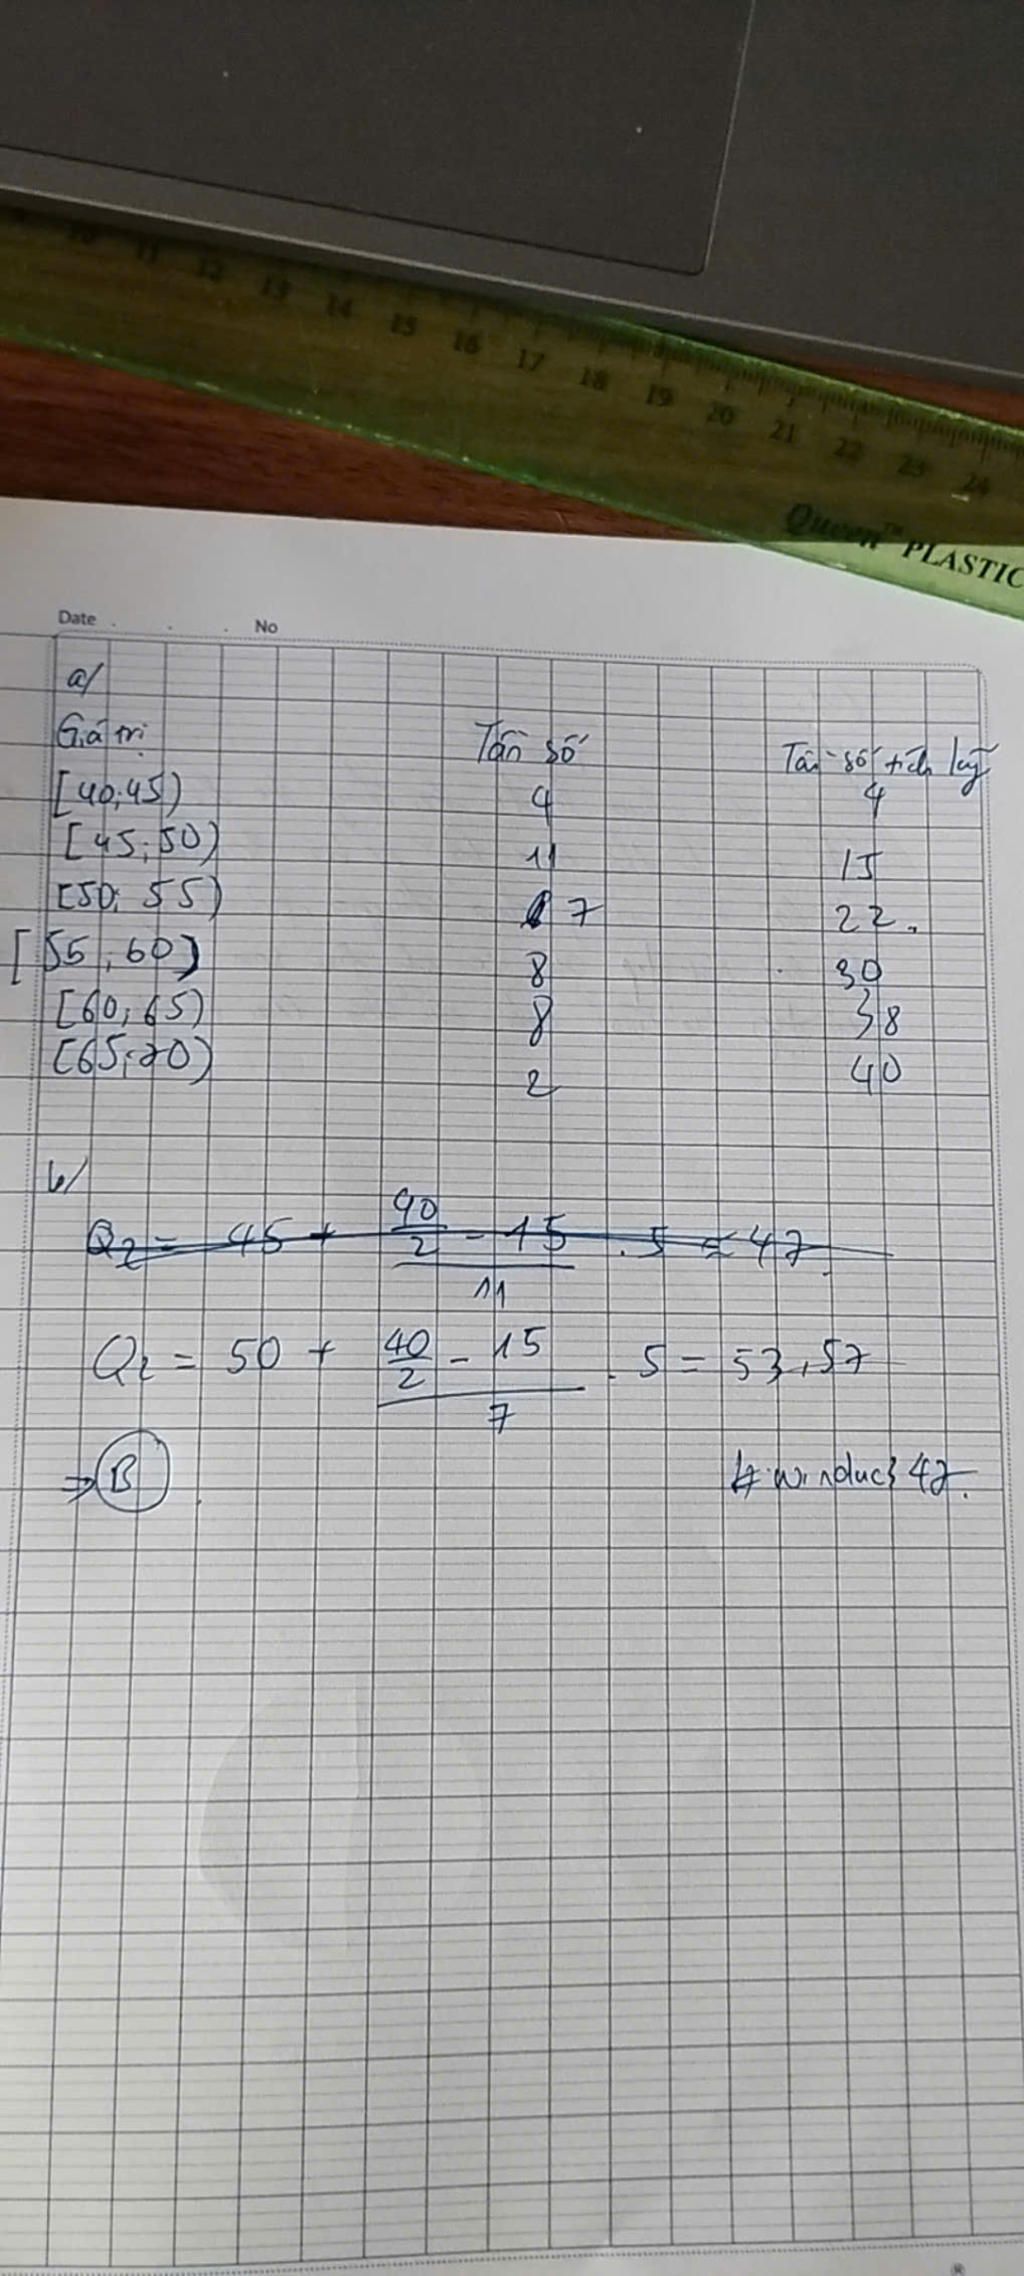 10 11 12 13 14 15 16 17 18 19 20 21 22 23 24
Queen™ PLASTIC
Date . . . No
a/
Giá trị Tần số Tần số tích luỹ
[40;45) 4 4
[45;50) 11 15
[50; 55) 7 22.
[55;60) 8 30
[60;65) 8 38
[65;70) 2 40
b/
Q2 = 45 + (40/2 - 15)/11 . 5 = 47
Q2 = 50 + (40/2 - 15)/7 . 5 = 53,57
⇒ B # winduc347.